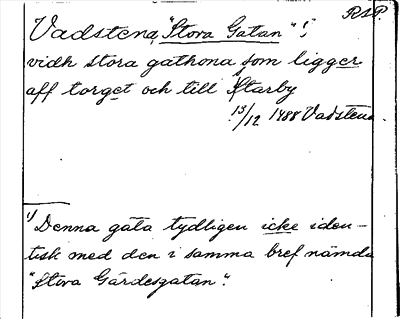 RAP.
Vadstena, "Stora Gatan" 1)
vidh stora gathona som ligger
aff torget och till Starby
13/12 1488 Vadstena
1) Denna gata tydligen icke iden-
tisk med den i samma bref nämda
"Stora Gärdesgatan".